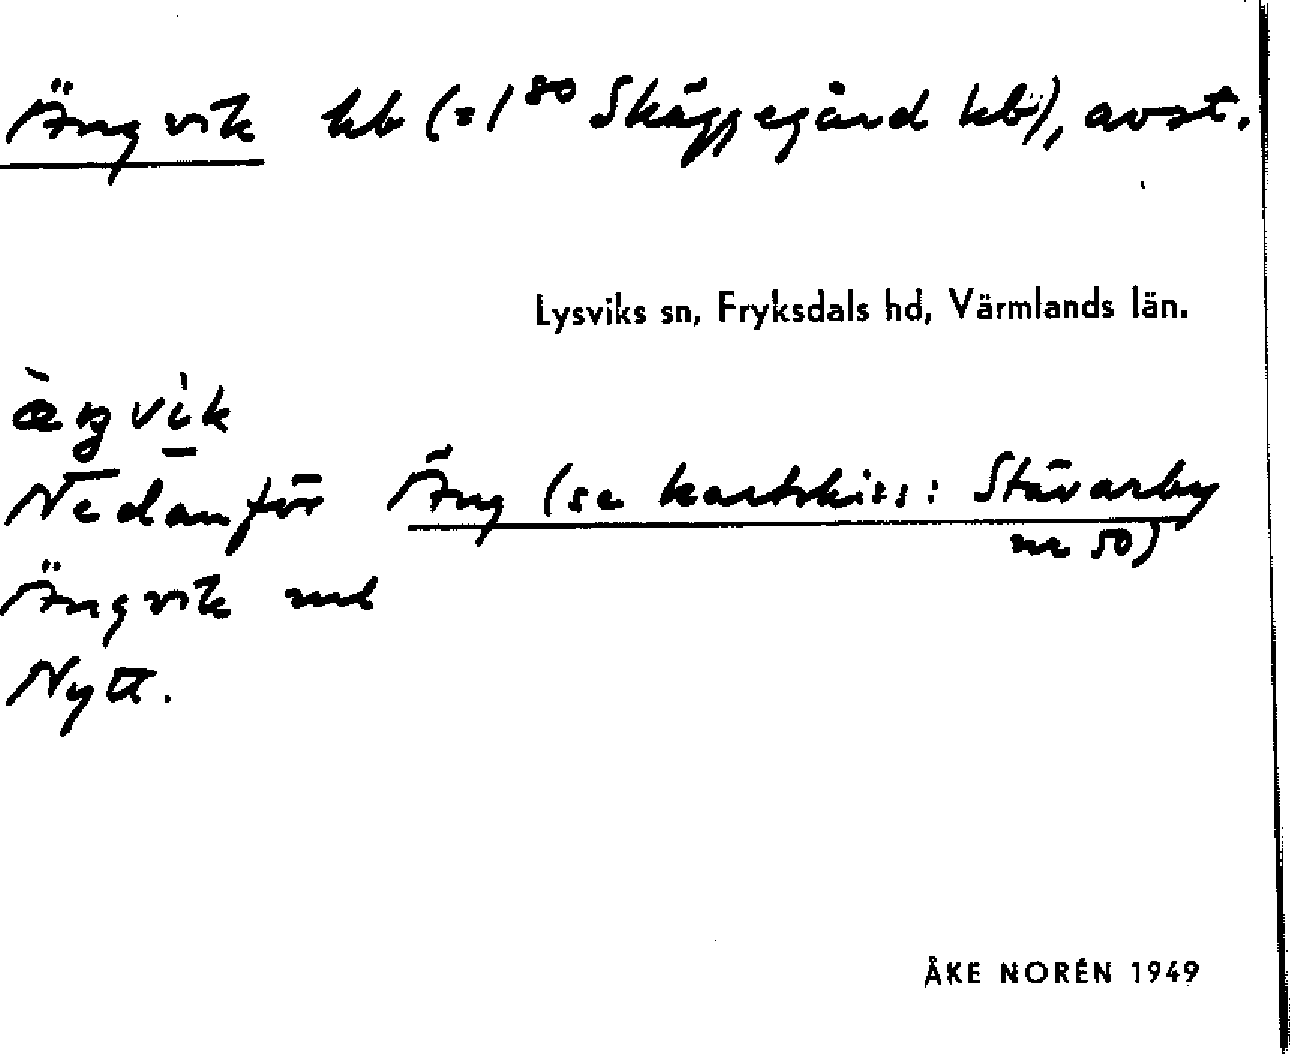 Ängvik hb (=1⁸⁰ Skäggegård hb), avst.
Lysviks sn, Fryksdals hd, Värmlands län.
æ̀ŋvìk
Nedanför Äng (se kartskiss: Stävarby
nr 50)
Ängvik md
Nytt.
ÅKE NORÉN 1949